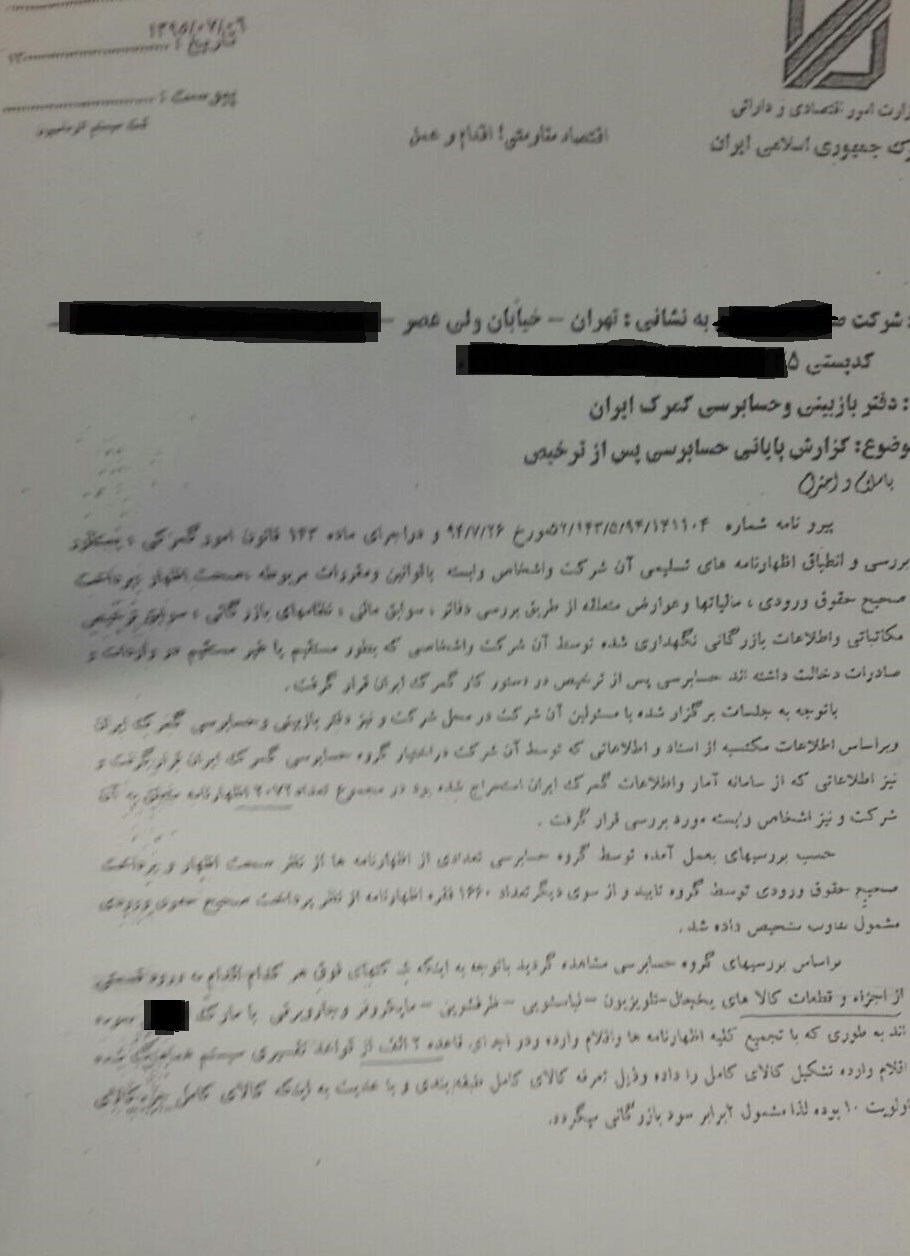 ۱۳۹۵/۰۷/۰۶
تاریخ :
پیوست :
وزارت امور اقتصادی و دارائی
گمرک جمهوری اسلامی ایران
اقتصاد مقاومتی؛ اقدام و عمل
: شرکت به نشانی : تهران – خیابان ولی عصر –
کدپستی
: دفتر بازبینی وحسابرسی گمرک ایران
موضوع: گزارش پایانی حسابرسی پس از ترخیص
باسلام و احترام
پیرو نامه شماره ۵۲/۱۴۳/۵/۹۴/۱۴۱۱۰۴مورخ ۹۴/۷/۲۶ و دراجرای ماده ۱۴۳ قانون امور گمرکی ، بمنظور
بررسی و انطباق اظهارنامه های تسلیمی آن شرکت واشخاص وابسته باقوانین ومقررات مربوطه ،صحت اظهار وپرداخت
صحیح حقوق ورودی ، مالیاتها وعوارض متعلقه از طریق بررسی دفاتر ، سوابق مالی ، نظامهای بازرگانی ، سوابق
مکاتباتی واطلاعات بازرگانی نگهداری شده توسط آن شرکت واشخاصی که بطور مستقیم یا غیر مستقیم در واردات و
صادرات دخالت داشته اند حسابرسی پس از ترخیص در دستور کار گمرک ایران قرار گرفت .
باتوجه به جلسات برگزار شده با مسئولین آن شرکت در محل شرکت و نیز دفتر بازبینی وحسابرسی گمرک ایران
وبراساس اطلاعات مکتسبه از اسناد و اطلاعاتی که توسط آن شرکت دراختیار گروه حسابرسی گمرک ایران قرارگرفت و
نیز اطلاعاتی که از سامانه آمار واطلاعات گمرک ایران استخراج شده بود در مجموع تعداد اظهارنامه متعلق به آن
شرکت و نیز اشخاص وابسته مورد بررسی قرار گرفت .
حسب بررسیهای بعمل آمده توسط گروه حسابرسی تعدادی از اظهارنامه ها از نظر صحت اظهار و پرداخت
صحیح حقوق ورودی توسط گروه تایید و از سوی دیگر تعداد ۱۶۶۰ فقره اظهارنامه از نظر پرداخت صحیح حقوق ورودی
مشمول تفاوت تشخیص داده شد.
براساس بررسیهای گروه حسابرسی مشاهده گردید باتوجه به اینکه شرکتهای فوق هر کدام اقدام به ورود قسمتی
از اجزاء و قطعات کالا های یخچال–تلویزیون–لباسشویی–ظرفشویی–مایکروفر وجاروبرقی با مارک نموده
اند به طوری که با تجمیع کلیه اظهارنامه ها واقلام وارده ودر اجرای قاعده ۲ الف از قواعد تفسیری سیستم هماهنگ شده
اقلام وارده تشکیل کالای کامل را داده وذیل تعرفه کالای کامل طبقه بندی و با عنایت به اینکه کالای کامل جزء کالای
اولویت ۱۰ بوده لذا مشمول ۲برابر سود بازرگانی میگردد.